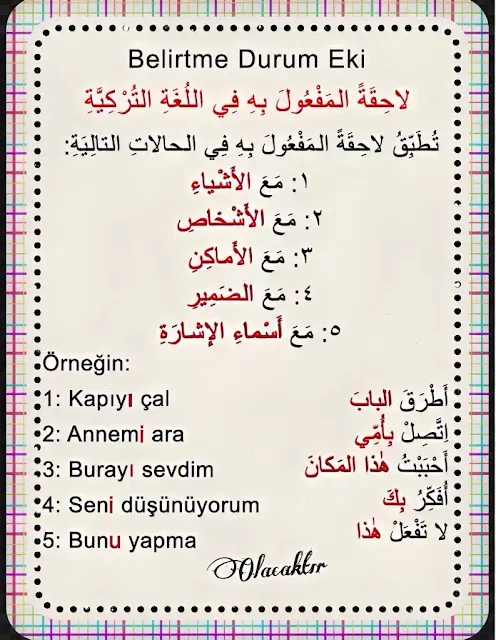 Belirtme Durum Eki
لاحِقَةً المَفْعُولَ بِهِ فِي اللُغَةِ التُرْكِيَّةِ
تُطَبِّقُ لاحِقَةً المَفْعُولَ بِهِ فِي الحالاتِ التالِيَةِ:
١: مَعَ الأَشْياءِ
٢: مَعَ الأَشْخاصِ
٣: مَعَ الأَماكِنِ
٤: مَعَ الضَمِيرِ
٥: مَعَ أَسْماءِ الإشارَةِ
Örneğin:
1: Kapıyı çal أَطْرَقَ البابَ
2: Annemi ara اِتَّصِلْ بِأُمِّي
3: Burayı sevdim أَحْبَبْتُ هٰذا المَكانَ
4: Seni düşünüyorum أُفَكِّرُ بِكَ
5: Bunu yapma لا تَفْعَلْ هٰذا
Olacaktır